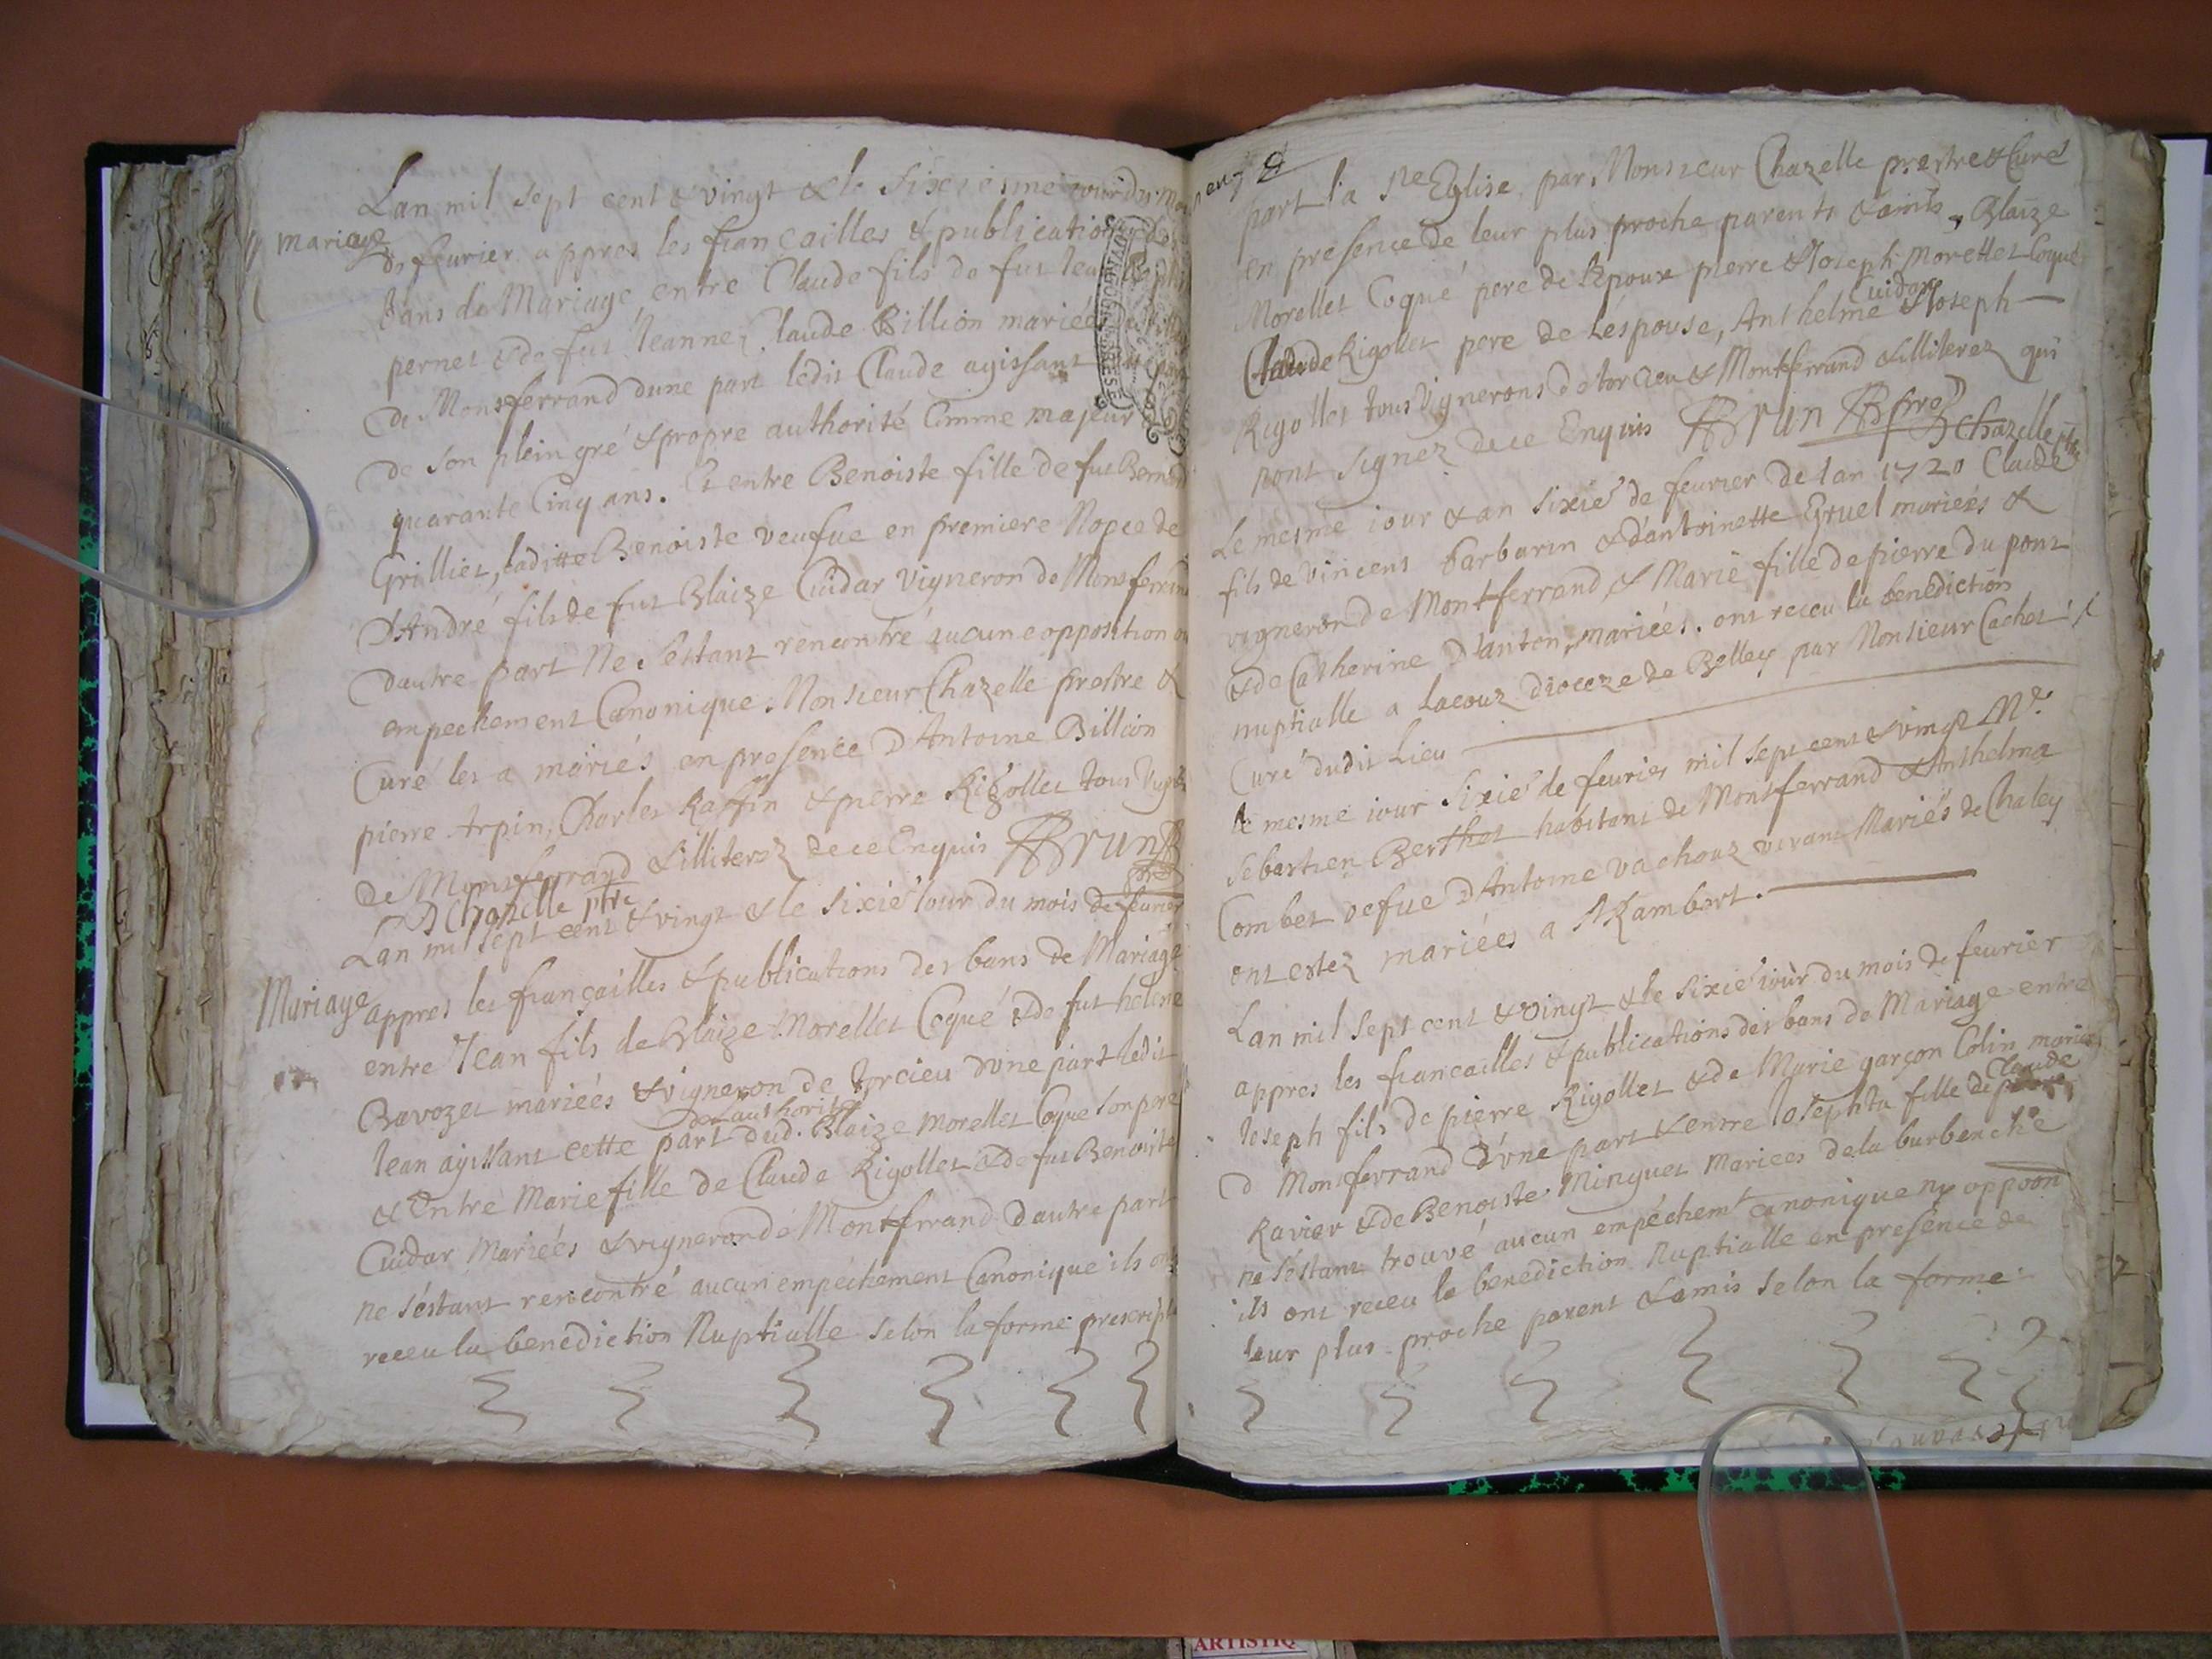 Lan mil sept cent & vingt & le sixiesme jour du
mariage
de feurier appres les françailles & publication des
bans de Mariage entre Claude fils de fut
pernet & de fut Jeanne Claude Billion mariés
de Monsferrand dune part ledit Claude agissant
de son plein gré & propre authorité Comme majeur
quarante Cinq ans. Et entre Benoiste fille de fut
Grillier, laditte Benoiste veufue en premiere Nopce de
D'André fils de fut Blaize Cuidar Vigneron de Monsferrand
Dautre part Ne Sestant rencontré aucune opposition
empechement Canonique. Monsieur Chazelle prestre &
Curé les a mariés en presence D'Antoine Billion
pierre Arpin, Charles Raffin & pierre Rigollet tous
de Monsferrand & illiterez de ce Enquis Brun
Chazelle ptre
Lan mil sept cent & vingt & le sixie Jour du mois de feurier
Mariage
appres les françailles & publications des bans de Mariage
entre Jean fils de Blaize Morellet Coqué & de fut helene
Bavozet mariéés & vigneron de torcieu dvne part ledit
de Lauthorité
Jean agissant cette part dud. Blaize Morellet Coque son pere
& Entre Marie fille de Claude Rigollet & de fut Benoiste
Cuidar Mariéés & vigneron de Montferrand Dautre part
ne séstant rencontré aucun empéchement Canonique ils ont
receu la benediction Nuptialle selon la forme prescripte
part la Ste Eglise par Monsieur Chazelle prestre & Curé
en presence de leur plus proche parents & amis, Blaize
Morellet Coqué pere de Lépoux pierre & Joseph Morellet Coqué
Cuidar
Claude Rigollet pere de Léspouse, Anthelme & Joseph
Rigollet tous Vignerons de torcieu & Montferrand & illiterez qui
nont signez de ce Enquis Brun Chazelle ptre
Le mesme iour & an sixié de feurier de lan 1720 Claude
fils de Vincent barbarin & dantoinette Gruel mariéés &
vigneron de Montferrand & Marie fille de pierre du pont
& de Catherine Dlanton, mariéés. ont receu la benediction
nuptialle a Lacoux dioceze de Belley par Monsieur Cachet
Curé dudit Lieu
le mesme iour Sixié de feurier mil sept cent & vingt Me
Sebastien Berthet habitant de Montferrand & Anthelma
Combet vefue D'Antoine vachouz vivant Mariés de Chaley
ont estez mariées a St Rambert.
Lan mil sept cent & vingt & le sixié iour du mois de feurier
appres les françailles & publications des bans de Mariage entre
Joseph fils de pierre Rigollet & de Marie garçon Colin mariés
Claude
D Monsferrand d'vne part & entre Josephta fille de
Ravier & de Benoiste Minguet Mariees de la burbenche
ne séstant trouvé aucun empéchemt canonique ny oppoon
ils ont receu la benediction Nuptialle en presence de
leur plus proche parent & amis selon la forme
ARTISTIQ